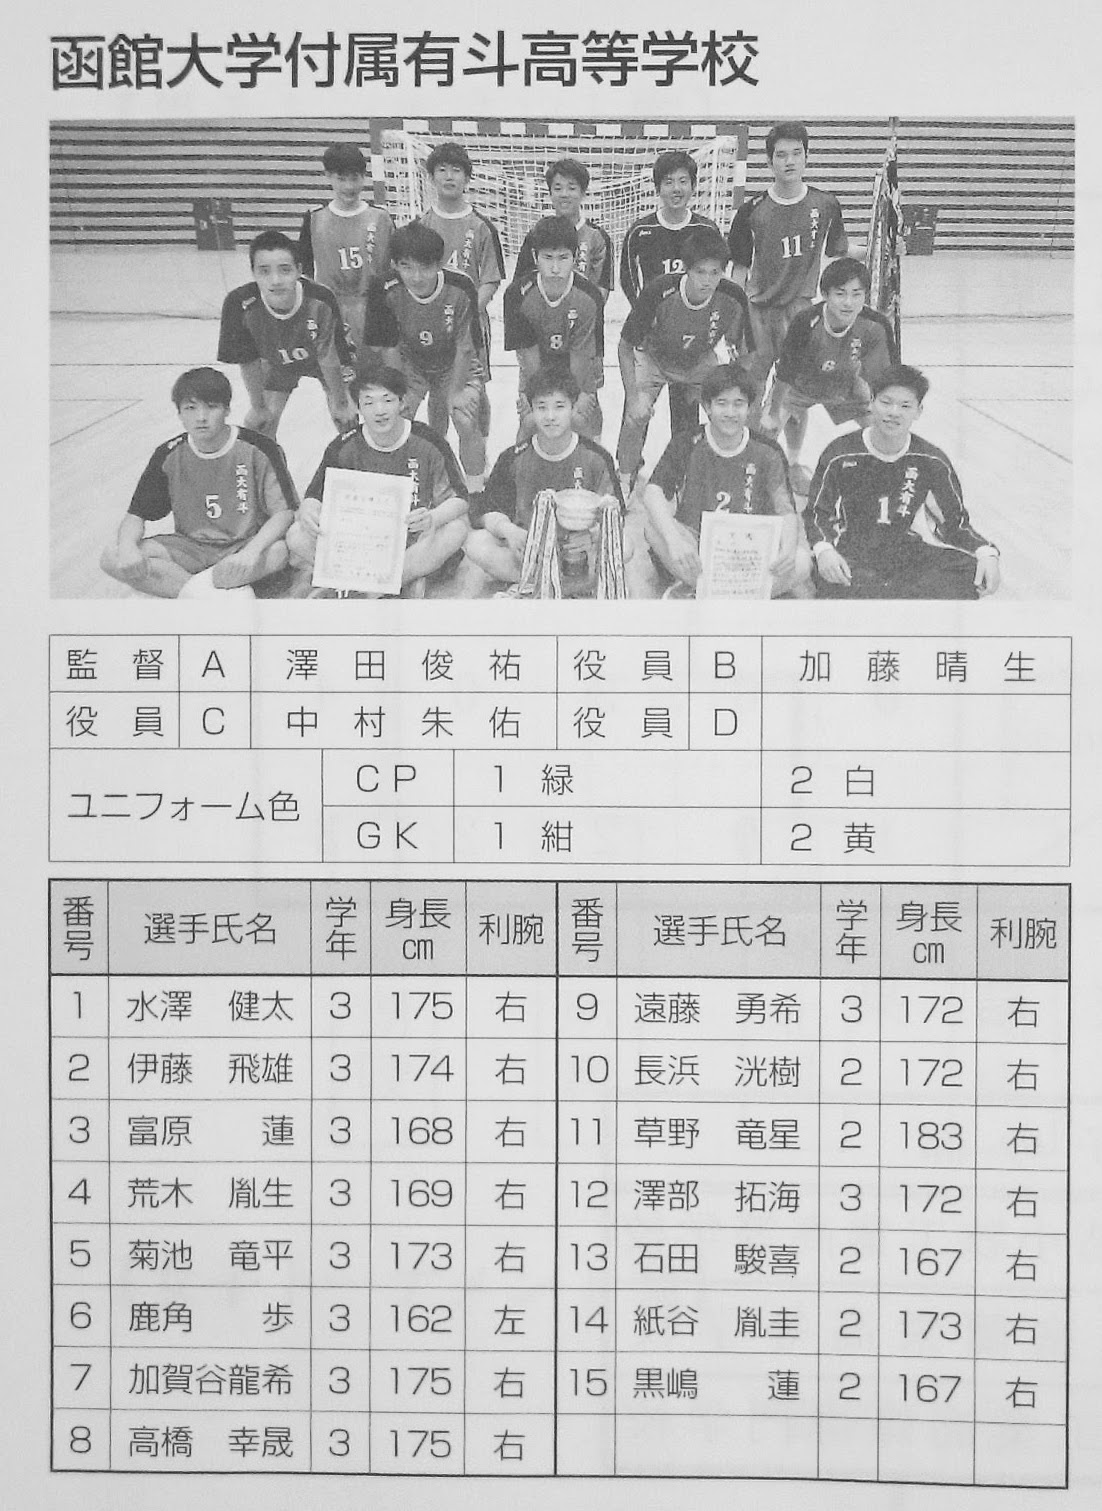 函館大学付属有斗高等学校
15
4
12
函大有斗
11
函大有斗
10
9
8
7
6
5
函大有斗
2
1
函大有斗
監督 A 澤田俊祐 役員 B 加藤晴生
役員 C 中村朱佑 役員 D
ユニフォーム色 CP 1 緑 2 白
GK 1 紺 2 黄
番号 選手氏名 学年 身長cm 利腕 番号 選手氏名 学年 身長cm 利腕
1 水澤 健太 3 175 右 9 遠藤 勇希 3 172 右
2 伊藤 飛雄 3 174 右 10 長浜 洸樹 2 172 右
3 富原 蓮 3 168 右 11 草野 竜星 2 183 右
4 荒木 胤生 3 169 右 12 澤部 拓海 3 172 右
5 菊池 竜平 3 173 右 13 石田 駿喜 2 167 右
6 鹿角 歩 3 162 左 14 紙谷 胤圭 2 173 右
7 加賀谷龍希 3 175 右 15 黒嶋 蓮 2 167 右
8 高橋 幸晟 3 175 右